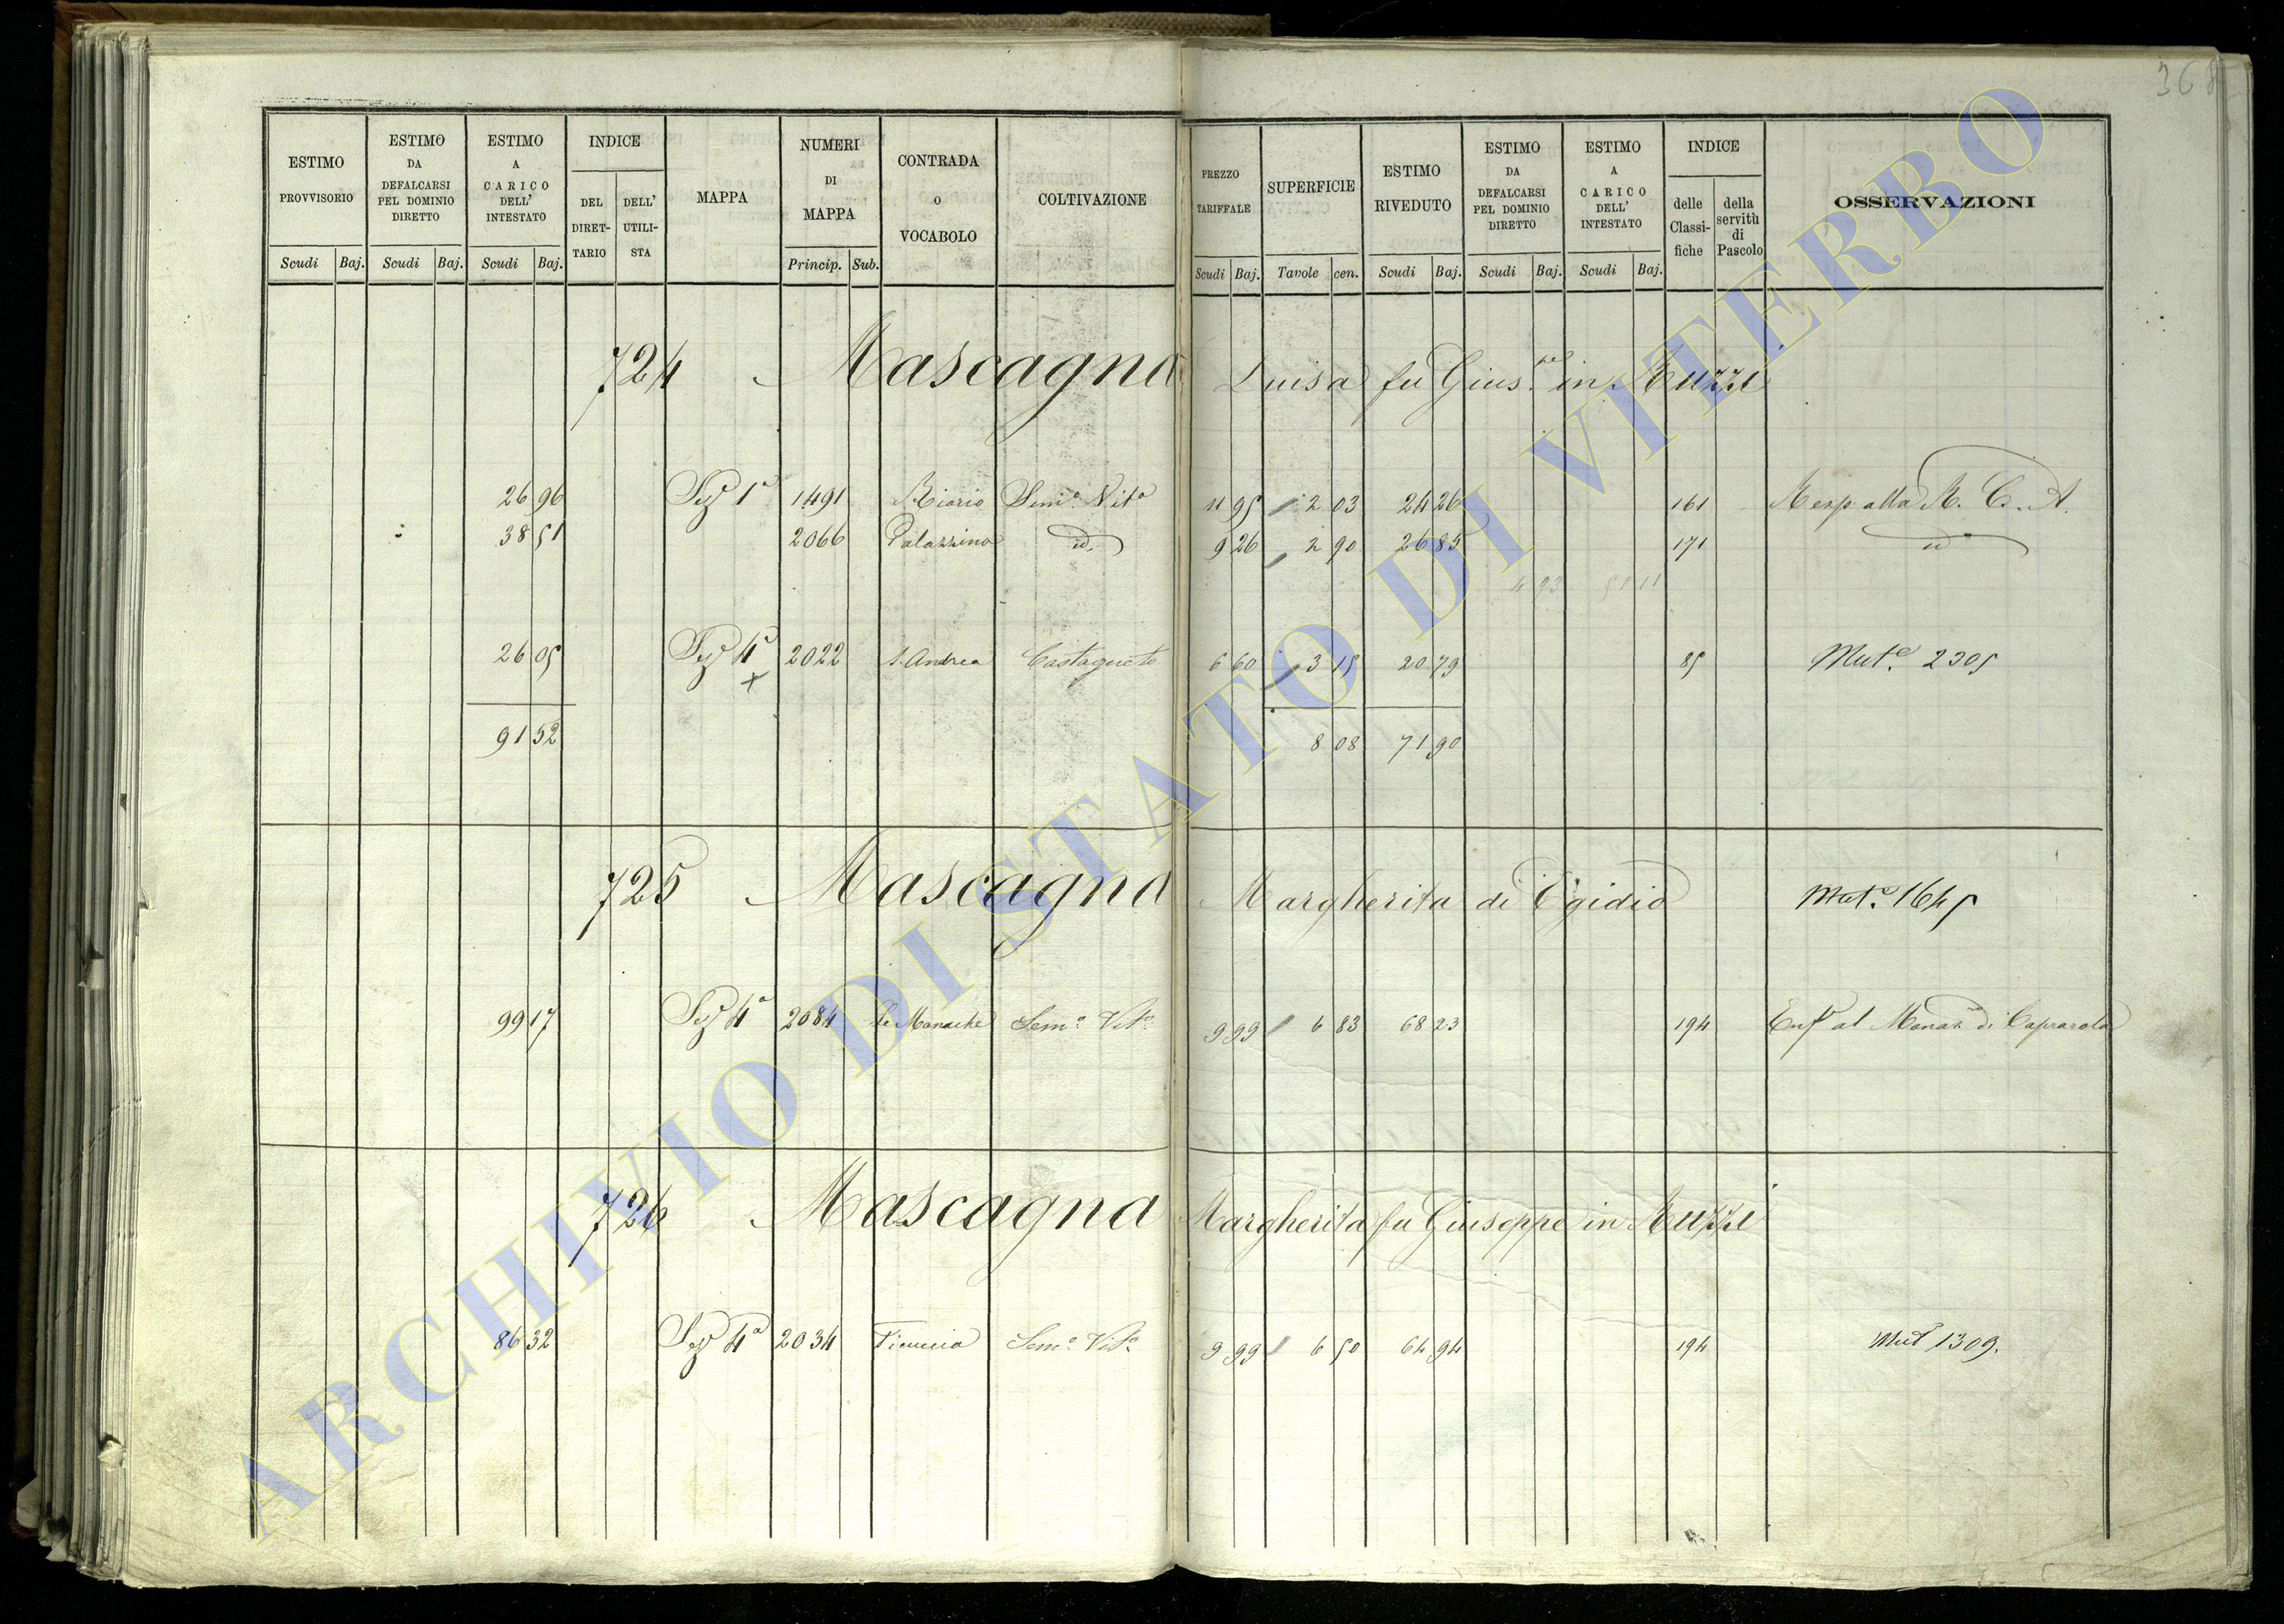 368
ESTIMO PROVVISORIO
ESTIMO DA DEFALCARSI PEL DOMINIO DIRETTO
ESTIMO A CARICO DELL' INTESTATO
INDICE
DEL DIRET-TARIO
DELL' UTILI-STA
MAPPA
NUMERI DI MAPPA
CONTRADA O VOCABOLO
COLTIVAZIONE
PREZZO TARIFFALE
SUPERFICIE
ESTIMO RIVEDUTO
ESTIMO DA DEFALCARSI PEL DOMINIO DIRETTO
ESTIMO A CARICO DELL' INTESTATO
INDICE
delle Classi-fiche
della servitù di Pascolo
OSSERVAZIONI
Scudi Baj. Scudi Baj. Scudi Baj. Princip. Sub. Scudi Baj. Tavole cen. Scudi Baj. Scudi Baj. Scudi Baj.
724 Mascagna Luisa fu Gius.pe in Muzzi
26 96 Sez 1a 1491 Riario Semo Vito 11 95 2 03 24 26 161 Resp alla R. C. A.
38 51 2066 Palazzina id. 9 26 2 90 26 85 171 id
4 93 51 11
26 05 Sez 4a 2022 S. Andrea Castagneto 6 60 3 15 20 79 85 Mut.e 2305
x
91 52 8 08 71 90
725 Mascagna Margherita di Egidio Mut.e 1645
99 17 Sez 4a 2084 Le Monache Semo Vito 9 99 6 83 68 23 194 Enf al Monas di Caprarola
726 Mascagna Margherita fu Giuseppe in Muzzi
86 32 Sez 4a 2034 Semo Vito 9 99 6 50 64 94 194 Mut 1309.
ARCHIVIO DI STATO DI VITERBO